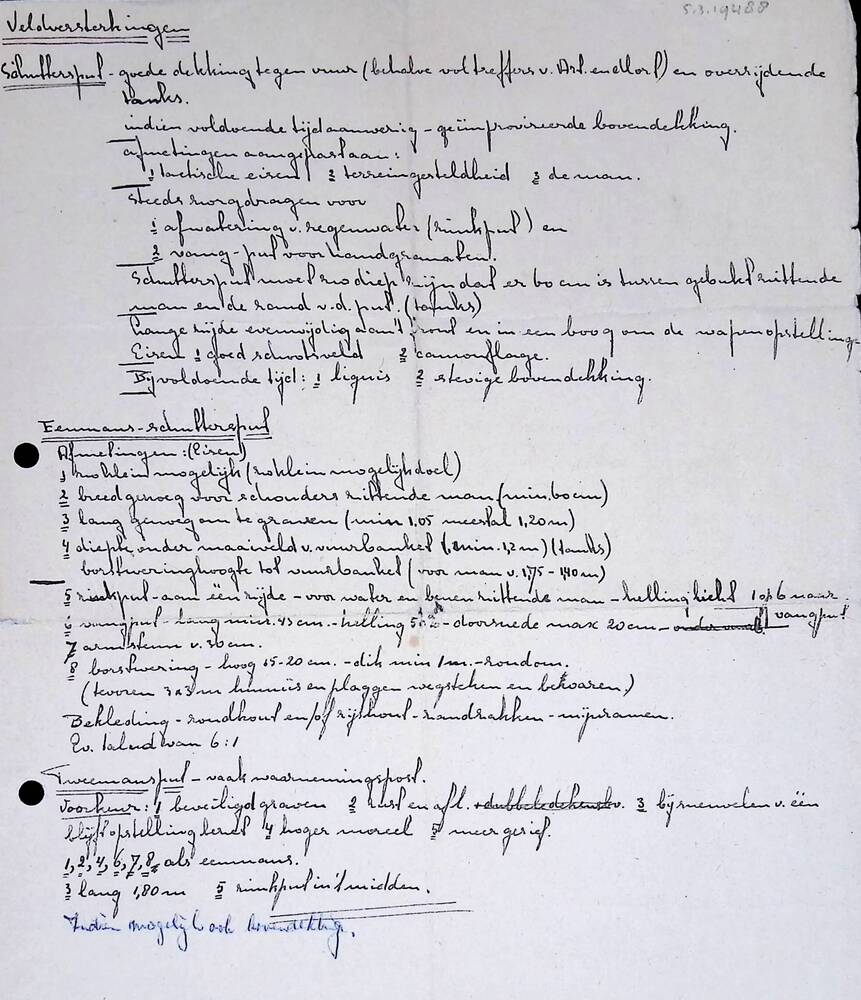 5.3.19488
Veldversterkingen
Schuttersput - goede dekking tegen vuur (behalve voltreffers v. Art. en Mort) en overrijdende
tanks.
indien voldoende tijd aanwezig - geïmproviseerde bovendekking.
afmetingen aangepast aan:
1 tactische eisen 2 terreingesteldheid 3 de man.
Steeds zorgdragen voor
1 afwatering v. regenwater (zinkput) en
2 vang-put voor handgranaten.
Schuttersput moet zo diep zijn dat er 60 cm is tussen gebukt zittende
man en de rand v.d. put. (tanks)
Lange zijde evenwijdig aan 't front en in een boog om de wapenopstelling.
Eisen 1 goed schootsveld 2 camouflage.
Bij voldoende tijd: 1 lignis 2 stevige bovendekking.
Eenmans-schuttersput
Afmetingen: (Eisen)
1 zo klein mogelijk (zo klein mogelijk doel)
2 breed genoeg voor schouders zittende man (min. 60 cm)
3 lang genoeg om te graven (min 1,05 meestal 1,20 m)
4 diepte onder maaiveld v. vuurbanket (min. 1,2 m) (tanks)
borstweringhoogte tot vuurbanket (voor man v. 1,75 - 1,40 m)
5 zinkput - aan één zijde - voor water en benen zittende man - helling licht 1 op 6 naar
vangput
6 vangput - lang min. 45 cm. - helling - doorsnede max 20 cm
7 armsteun v. 30 cm.
8 borstwering - hoog 15-20 cm. - dik min 1 m. - rondom.
(tevoren 3x3 m humus en plaggen wegsteken en bewaren)
Bekleding - rondhout en/of rijshout - zandzakken - nijpramen.
Ev. talud van 6:1
Tweemansput - vaak waarnemingspost.
Voorkeur: 1 beveiligd graven 2 rust en afl. 3 bij sneuvelen v. één
blijft opstelling bezet 4 hoger moreel 5 meer gerief.
1, 2, 4, 6, 7, 8, als eenmans.
3 lang 1,80 m 5 zinkput in 't midden.
Indien mogelijk ook bovendekking.